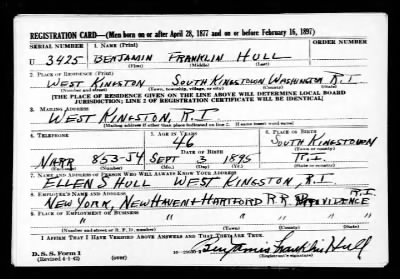 REGISTRATION CARD—(Men born on or after April 28, 1877 and on or before February 16, 1897)
SERIAL NUMBER 1. NAME (Print)
U 3425 BENJAMIN FRANKLIN HULL
(First) (Middle) (Last)
2. PLACE OF RESIDENCE (Print)
WEST KINGSTON SOUTH KINGSTOWN WASHINGTON R.I.
(Number and street) (Town, township, village, or city) (County) (State)
[THE PLACE OF RESIDENCE GIVEN ON THE LINE ABOVE WILL DETERMINE LOCAL BOARD
JURISDICTION; LINE 2 OF REGISTRATION CERTIFICATE WILL BE IDENTICAL]
3. MAILING ADDRESS
WEST KINGSTON, R.I.
[Mailing address if other than place indicated on line 2. If same insert word same]
4. TELEPHONE 5. AGE IN YEARS 6. PLACE OF BIRTH
46 SOUTH KINGSTOWN
DATE OF BIRTH (Town or county)
NARR 853-J4 SEPT 3 1895 R.I.
(Exchange) (Number) (Mo.) (Day) (Yr.) (State or country)
7. NAME AND ADDRESS OF PERSON WHO WILL ALWAYS KNOW YOUR ADDRESS
ELLEN S HULL WEST KINGSTON, R.I
8. EMPLOYER'S NAME AND ADDRESS R.I.
NEW YORK, NEW HAVEN + HARTFORD R.R. PROVIDENCE
9. PLACE OF EMPLOYMENT OR BUSINESS
" " " " "
(Number and street or R. F. D. number) (Town) (County) (State)
I AFFIRM THAT I HAVE VERIFIED ABOVE ANSWERS AND THAT THEY ARE TRUE.
Benjamin Franklin Hull
D. S. S. Form 1
(Revised 4-1-42) (over) (Registrant's signature)